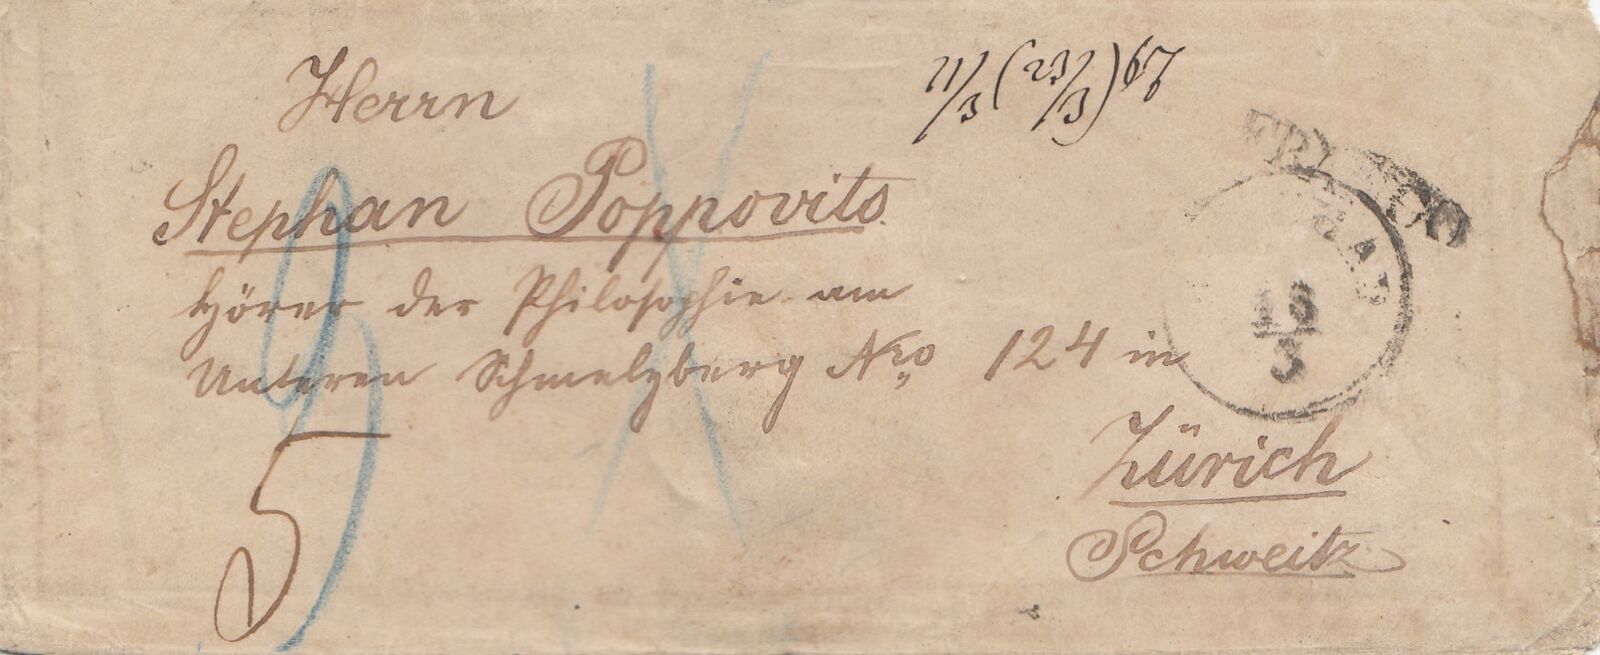 Herrn
11/3 (23/3) 67
Stephan Poppovits
Hörer der Philosophie am
Unteren Schmelzberg Nro 124 in
Zürich
Schweitz
FRANCO
16
3
3
5